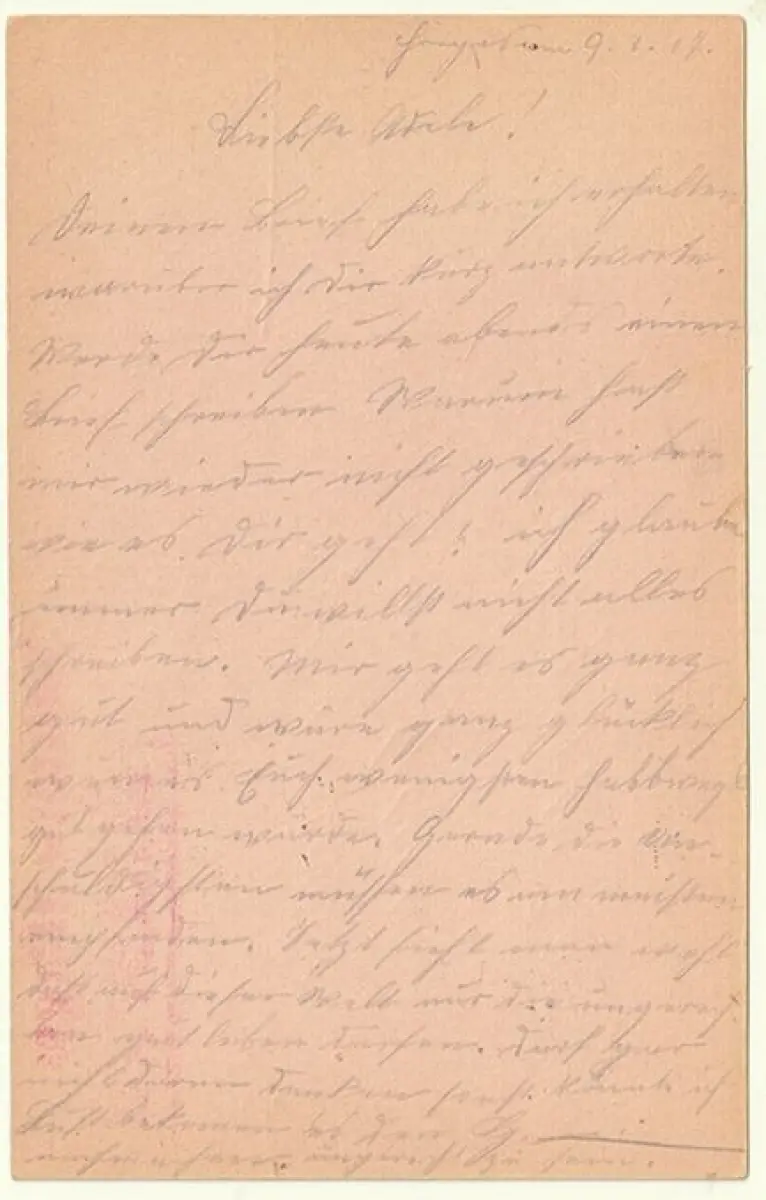 9.1.17.
Liebste Adele!
Deinen Brief habe ich erhalten
worüber ich dir kurz antworte.
Werde dir heute abends einen
Brief schreiben Warum hast
mir wieder nicht geschrieben
wie es Dir geht? ich glaube
immer Du willst nicht alles
schreiben. Mir geht es ganz
gut und wäre ganz glücklich
wenn es Euch wenigsten halbwegs
gut gehen würde. Gerade die un-
schuldigsten müssen es am meisten
Jetzt sieht man wohl
daß auf dieser Welt nur die ungerech-
ten gut leben dürfen. Darf gar
nicht daran denken sonst könnte ich
Lust bekommen es den
ungerecht zu sein.